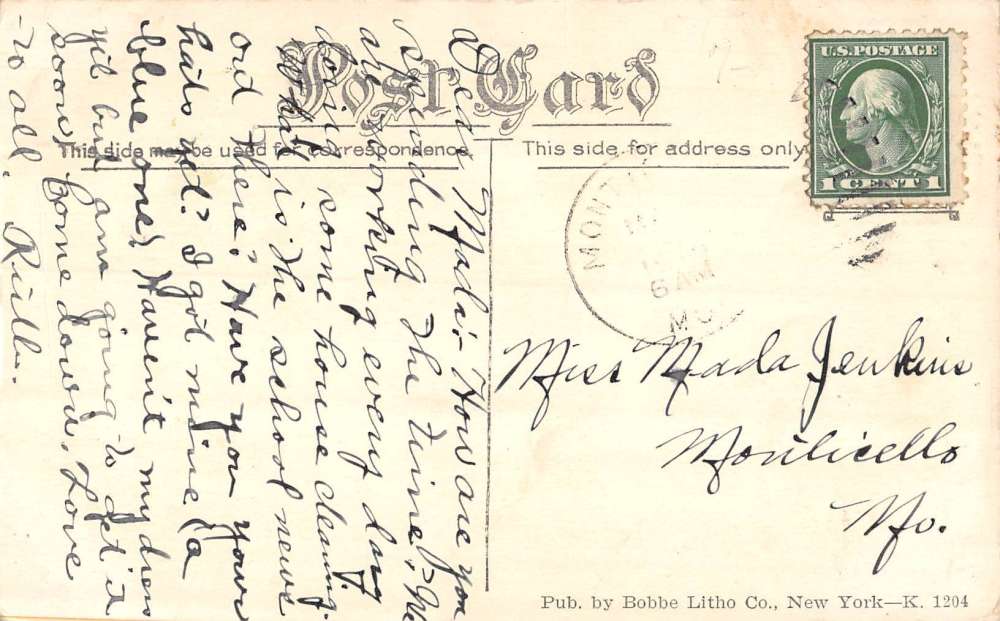 Post Card
This side may be used for correspondence
This side for address only
U.S. POSTAGE
1 CENT 1
MONT
6 AM
MO
Dear Mada:- How are you
spending the time? We
are working every day
doing some house cleaning.
What is the school news
out there? Have you your
hats yet? I got mine (a
blue one) Haven't my dress
yit but am going to get it
soon, Come down. Love
to all. Ruth.
Miss Mada Jenkins
Monticello
Mo.
Pub. by Bobbe Litho Co., New York—K. 1204